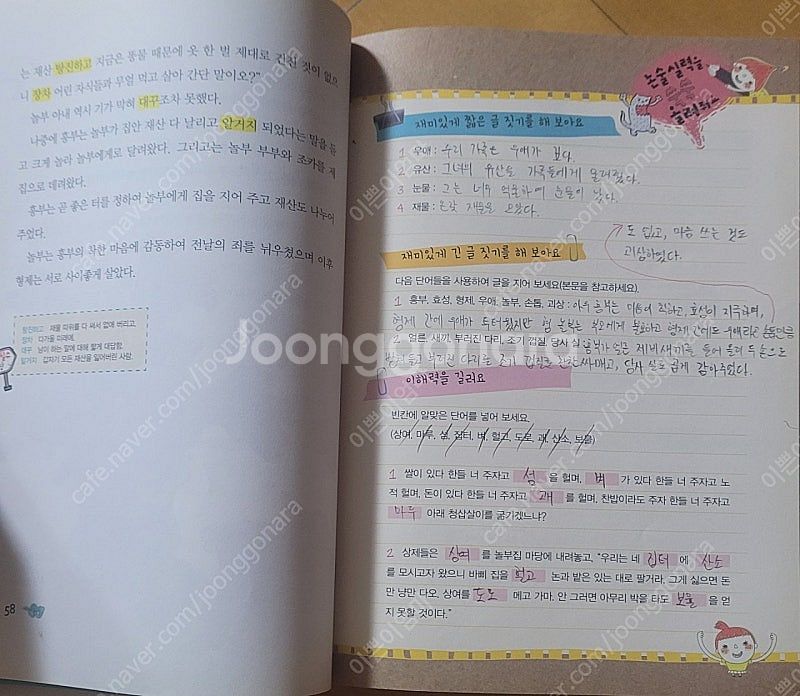 는 재산 탕진하고 지금은 똥물 때문에 옷 한 벌 제대로 건진 것이 없으
니 장차 어린 자식들과 무얼 먹고 살아 간단 말이오?"
놀부 아내 역시 기가 막혀 대꾸조차 못했다.
나중에 흥부는 놀부가 집안 재산 다 날리고 알거지 되었다는 말을 듣
고 크게 놀라 놀부에게로 달려왔다. 그리고는 놀부 부부와 조카를 제
집으로 데려왔다.
흥부는 곧 좋은 터를 정하여 놀부에게 집을 지어 주고 재산도 나누어
주었다.
놀부는 흥부의 착한 마음에 감동하여 전날의 죄를 뉘우쳤으며 이후
형제는 서로 사이좋게 살았다.
탕진하고 재물 따위를 다 써서 없애 버리고.
장차 다가올 미래에.
대꾸 남이 하는 말에 대해 짧게 대답함.
알거지 갑자기 모든 재산을 잃어버린 사람.
58
논술실력을
쑥쑥
올려줘요
재미있게 짧은 글 짓기를 해 보아요
1 우애 : 우리 가족은 우애가 깊다.
2 유산 : 그녀의 유산은 가족들에게 돌려졌다.
3 눈물 : 그는 너무 억울하여 눈물이 났다.
4 재물 : 온갖 재물을 모았다.
도 없고, 마음 쓰는 것도
괴상하였다.
재미있게 긴 글 짓기를 해 보아요
다음 단어들을 사용하여 글을 지어 보세요(본문을 참고하세요).
1 흥부, 효성, 형제, 우애, 놀부, 손톱, 괴상 : 아우 흥부는 마음이 착하고, 효성이 지극하며,
형제 간에 우애가 두터웠지만 형 놀부는 부모에게 불효하고 형제 간에도 우애라곤 손톱만큼
2 얼른, 새끼, 부러진 다리, 조기 껍질, 당사 실
부러진 다리를 조기 껍질로 싸매고, 당사 실로 곱게 감아주었다.
이해력을 길러요
빈칸에 알맞은 단어를 넣어 보세요.
(상여, 마루, 섬, 집터, 벼, 헐고, 도로, 괘, 산소, 보물)
1 쌀이 있다 한들 너 주자고 섬 을 헐며, 벼 가 있다 한들 너 주자고 노
적 헐며, 돈이 있다 한들 너 주자고 괘 를 헐며, 찬밥이라도 주자 한들 너 주자고
마루 아래 청삽살이를 굶기겠느냐?
2 상제들은 상여 를 놀부집 마당에 내려놓고, "우리는 네 집터 에 산소
를 모시고자 왔으니 바삐 집을 헐고 논과 밭은 있는 대로 팔거라. 그게 싫으면 돈
만 냥만 다오. 상여를 도로 메고 가마. 안 그러면 아무리 박을 타도 보물 을 얻
지 못할 것이다."
Joonggonara
cafe.naver.com/joonggonara